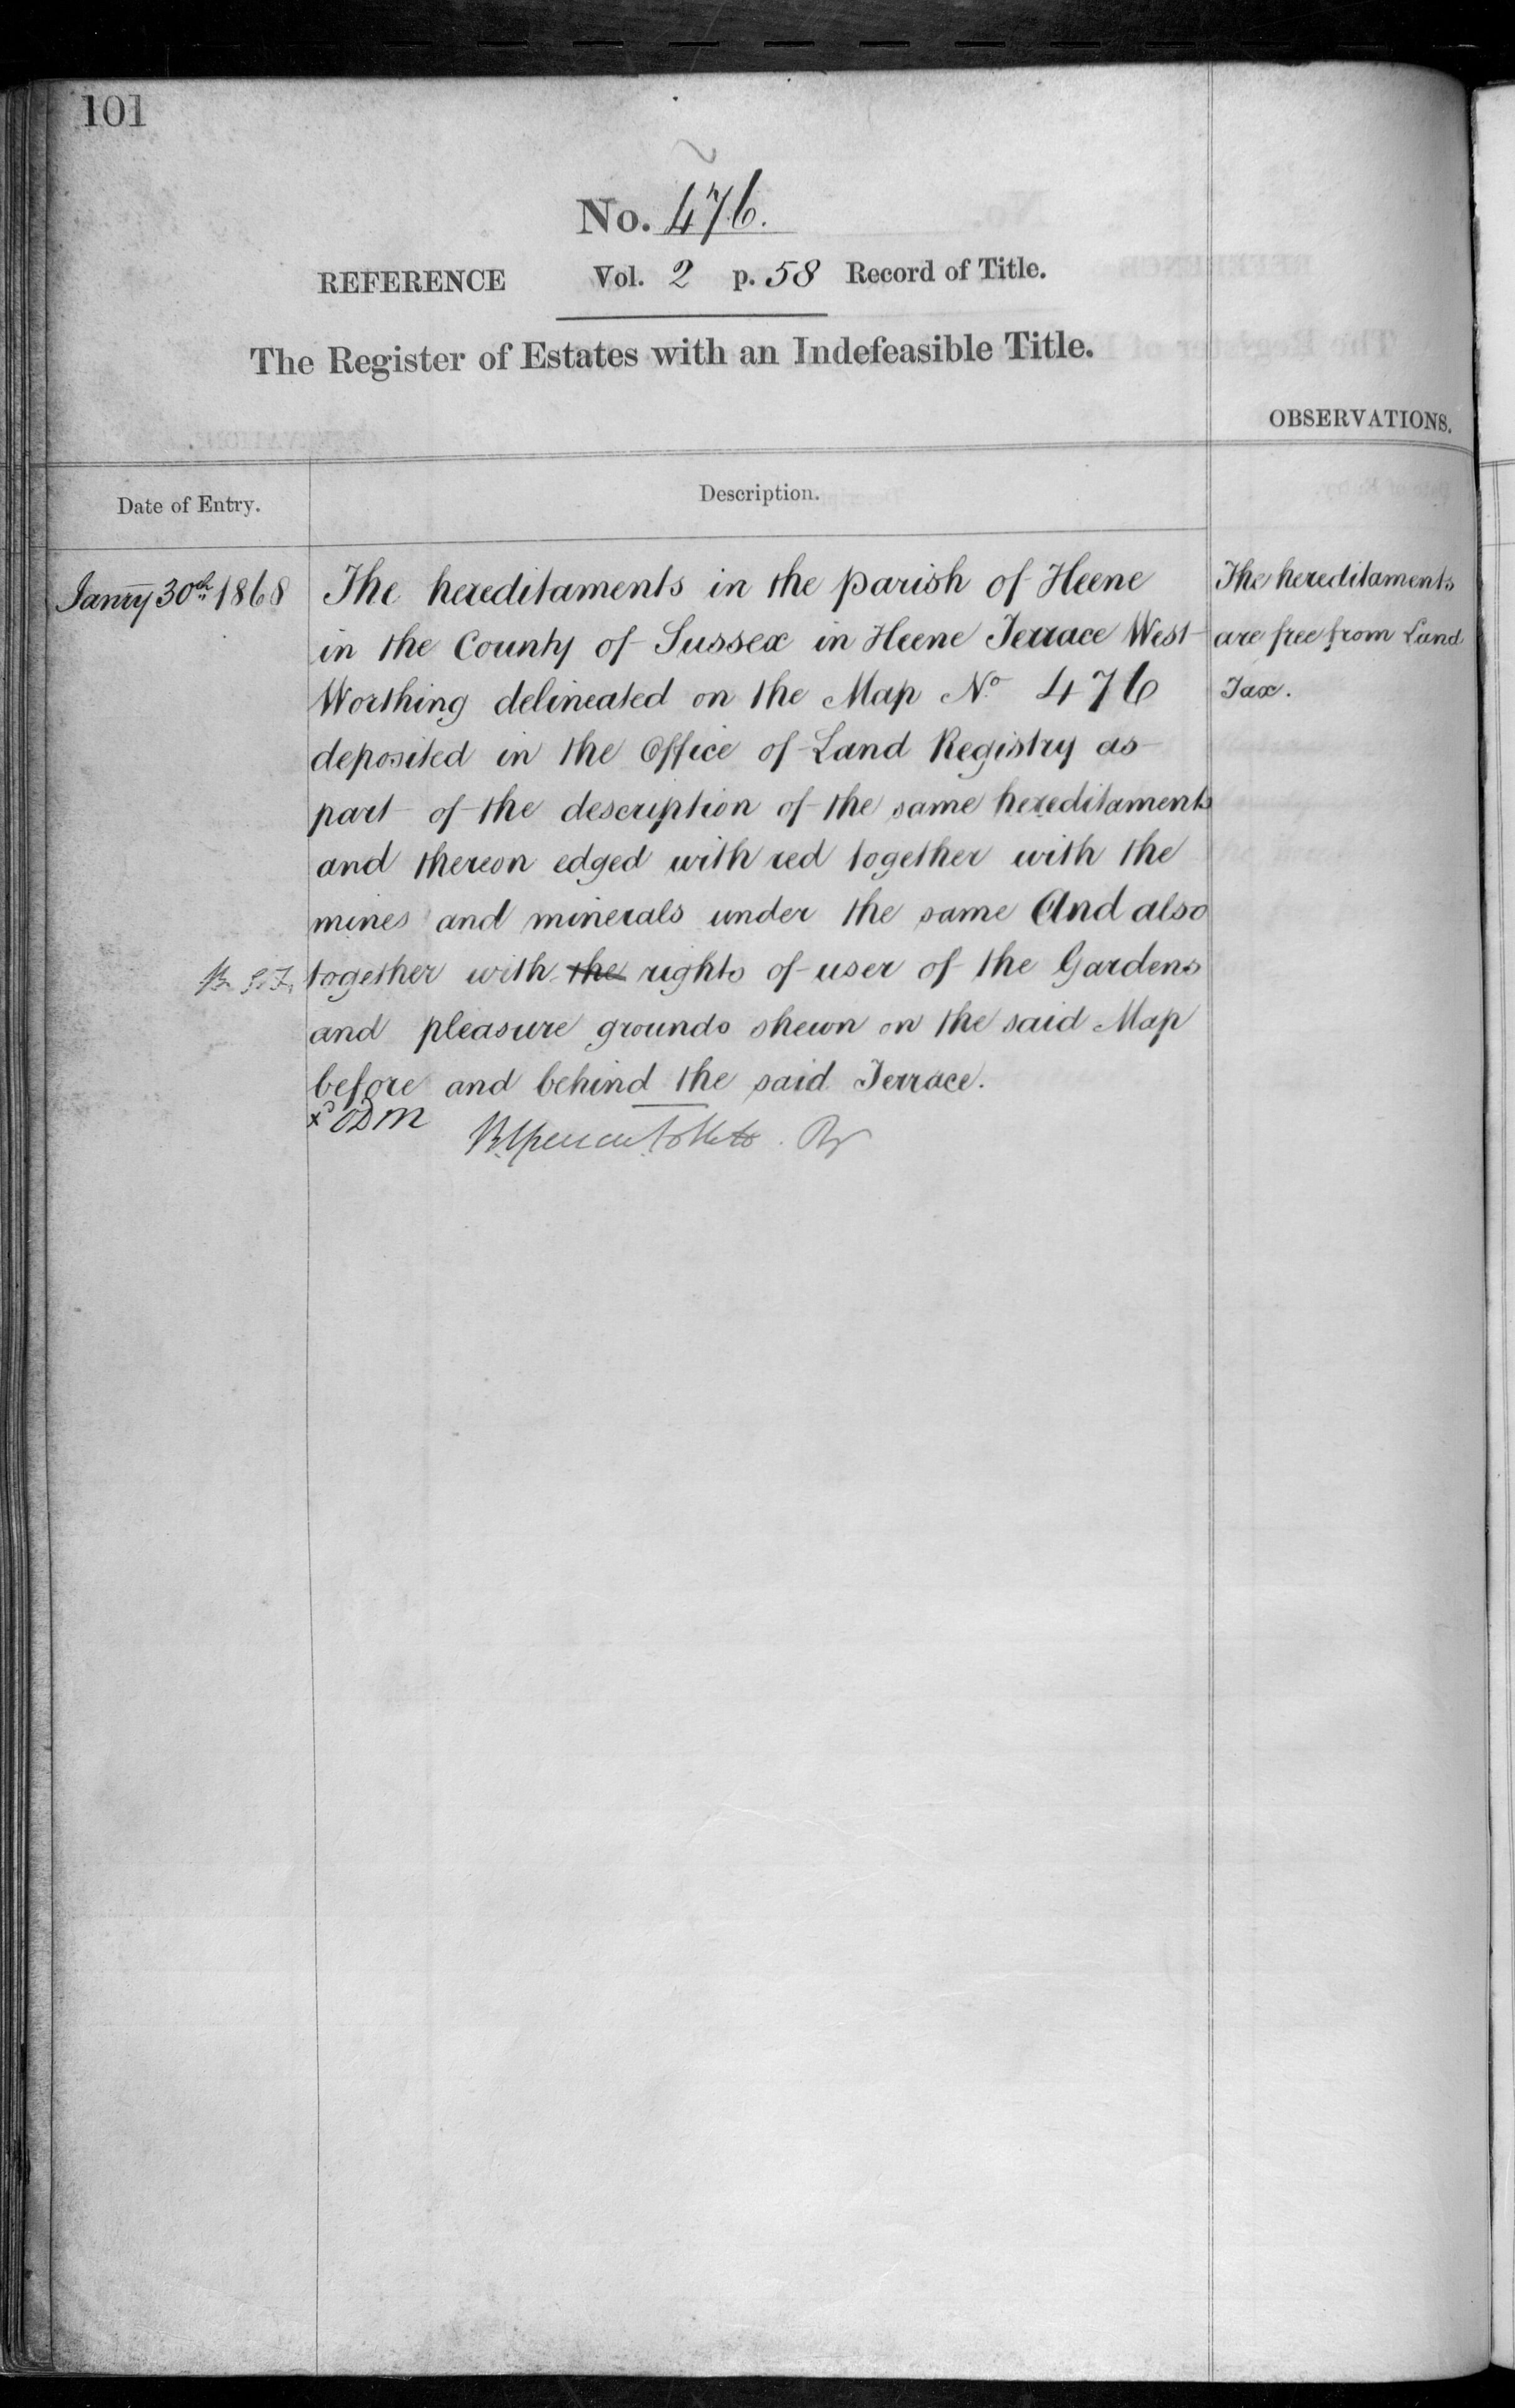 101
No. 476.
REFERENCE Vol. 2 p. 58 Record of Title.
The Register of Estates with an Indefeasible Title.
OBSERVATIONS.
Date of Entry.
Description.
Janry 30th 1868
The hereditaments in the parish of Heene
in the County of Sussex in Heene Terrace West
Worthing delineated on the Map No. 476
deposited in the Office of Land Registry as
part of the description of the same hereditaments
and thereon edged with red together with the
mines and minerals under the same And also
together with the rights of user of the Gardens
and pleasure grounds shewn on the said Map
before and behind the said Terrace.
The hereditaments
are free from Land
Tax.
B. S. F.
xd ODM